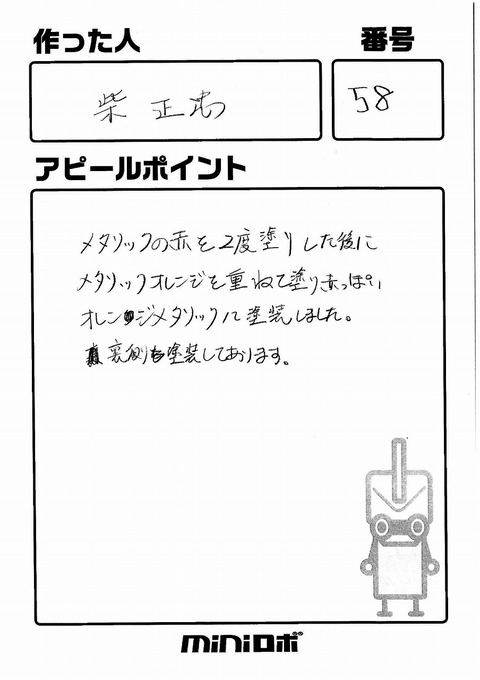 作った人
番号
柴 正
58
アピールポイント
メタリックの赤を2度塗りした後に
メタリックオレンジを重ねて塗り赤っぽい
オレンジメタリックに塗装しました。
裏側も塗装しております。
miniロボ